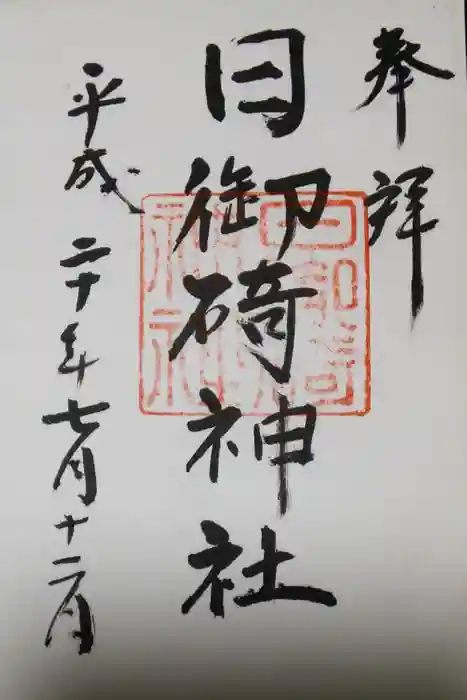 奉拝
日御碕神社
平成二十年七月十二日
日御碕
神社